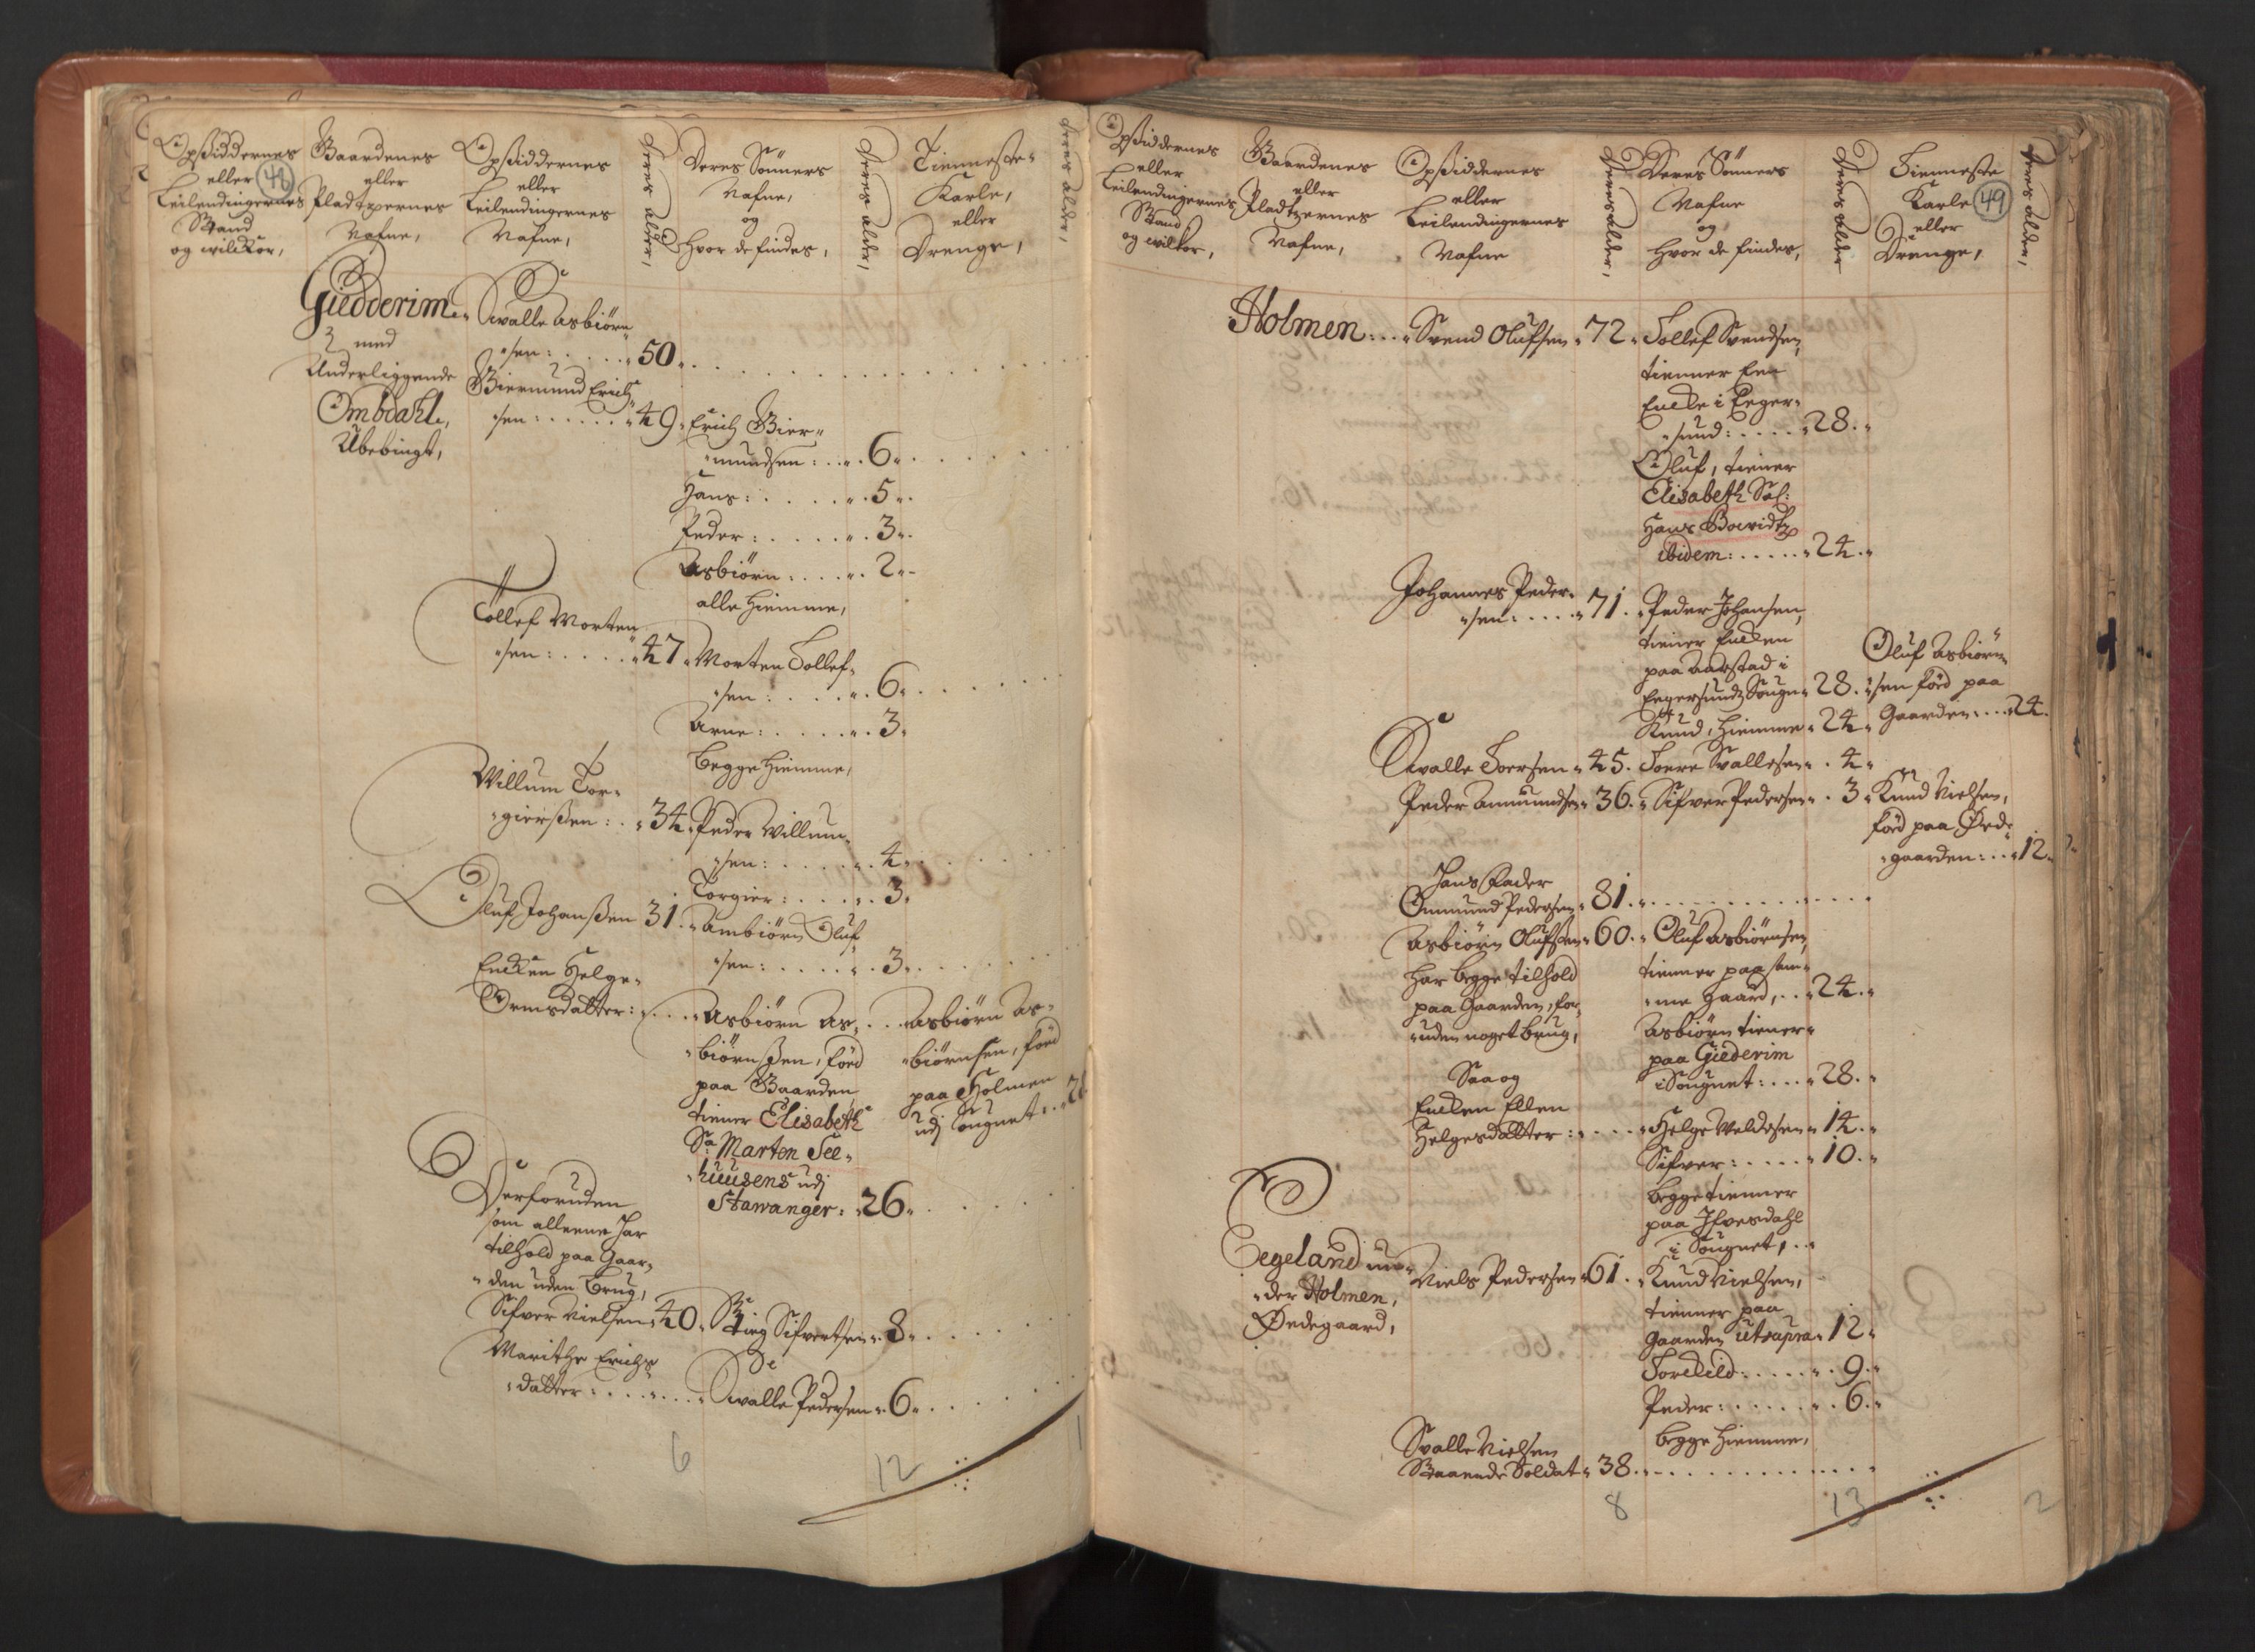 Opsiddernes
eller
Leilendingernes
Stand
og vilckor,
48
Gaardenes
eller
Pladtzernes
Nafne,
Opsiddernes
eller
Leilendingernes
Nafne,
Deres alder,
Deres Sönners
Nafne,
og
Hvor de findes,
Deres alder,
Tienneste-
Karle,
eller
Drenge,
deres alder,
Giedderim
med
Underliggende
Ombdahl,
Ubebingt,
Svalle Asbiörn
sen: 50
Biermund Erich
sen: 49 Erich Bier
mundsen: 6
Hans: 5
Peder: 3
Asbiörn: 2
alle hiemme,
Tollef Morten
sen: 47 Morten Tollef
sen: 6
Arne: 3
Begge hiemme,
Willum Tor
gierßen: 34 Peder Willum
sen: 4
Torgier: 3
Oluf Johanßen 31 Ambiörn Oluf
sen: 3
Encken Helge
Ormsdatter: Asbiörn As
biörnßen, föd
paa Gaarden
tiener Elisabeth
Sa: Marten See
huusens udj
Stawanger: 26
Asbiörn As
biörnsen, föd
paa Holmen
udj Sougnet:
Derforuden
som alleene har
tilhold paa Gaar
den uden Brug,
Sifver Nielsen 40 Stieg Sifvertsen 8
Marithe Erichs
datter: Svalle Pedersen 6
6 12 1
Opsiddernes
eller
Leilendingernes
Stand
og vilkor,
Gaardenes
eller
Pladtzernes
Nafne,
Opsiddernes
eller
Leilendingernes
Nafne
Deres alder,
Deres Sönners
Nafne
og
Hvor de findes,
Deres alder
Tienneste
Karle
eller
Drenge,
49
deres alder,
Holmen: Svend Olufsen 72 Tollef Svendsen,
tienner Een
Encke i Eeger
sund: 28
Oluf, tiener
Elisabeth Sal:
Hans Bowridtz
ibidem: 24
Johannes Peder
sen: 71 Peder Johansen,
tiener Encken
paa Aarstad i
Eegersundz Sougn 28
Knud, hiemme 24
Oluf Asbiörn
sen föd paa
Gaarden 24
Svalle Toersen 45 Toere Svallesen 4
Peder Ammundsen 36 Sifver Pedersen 3 Knud Nielsen,
föd paa Øde
gaarden: 12
Hans Fader
Ommund Pedersen 81
Asbiörn Olufsen 60 Oluf Asbiörnsen,
har begge tilhold
paa Gaarden, for
uden noget brug,
tienner paa sam
me Gaard, 24
Asbiörn tiener
paa Giederim
i Sougnet: 28
Saa og
Encken Ellen
Helgesdatter: Helge Veldesen 14
Sifver: 10
begge tienner
paa Ifvesdahl
i Sougnet,
Eegeland un
der Holmen,
Ødegaard,
Niels Pedersen 61 Knud Nielsen,
tienner paa
Gaarden ut supra 12
Torckild: 9
Peder: 6
begge hiemme,
Svalle Nielsen
Staaende Soldat 38
8 13 2